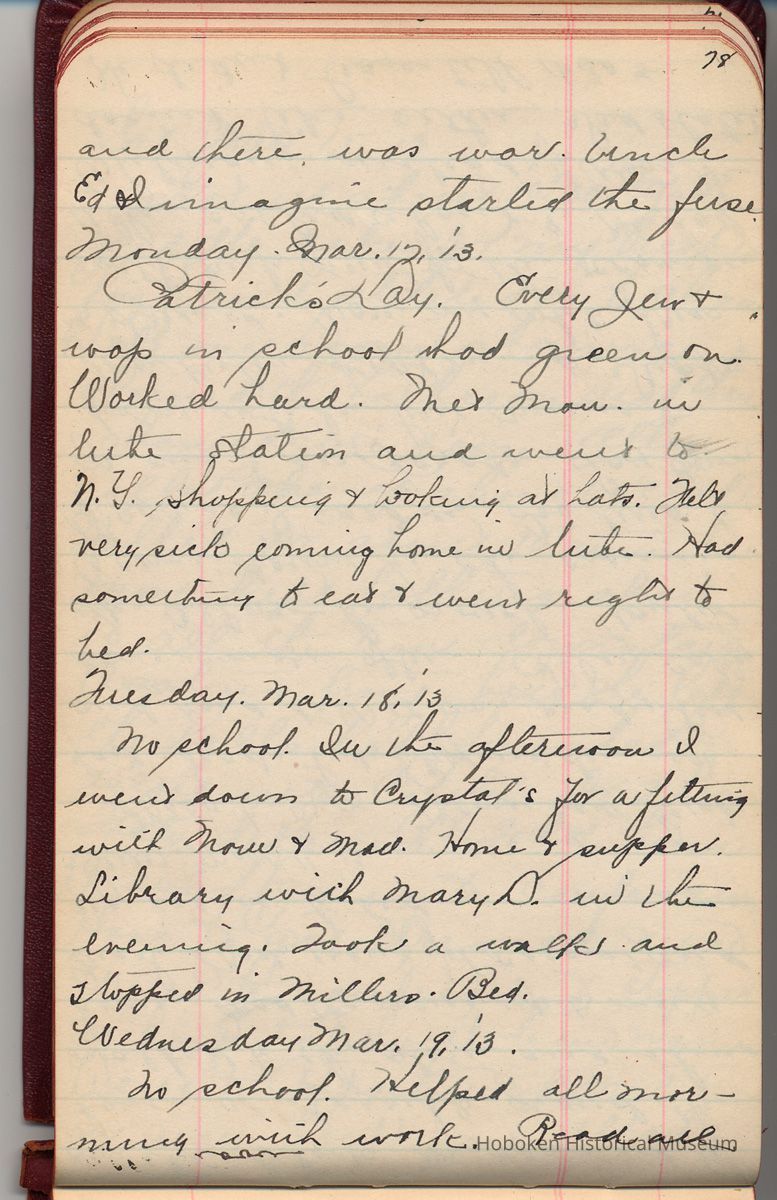 78
and there, was war. Uncle
Ed & I imagine started the fuse.
Monday. Mar. 17, '13.
Patrick's Day. Every Jew &
wop in school had green on.
Worked hard. Met Mom. in
tube station and went to
N.Y. shopping & looking at hats. Felt
very sick coming home in tube. Had
something to eat & went right to
bed.
Tuesday. Mar. 18, '13
No school. In the afternoon I
went down to Crystal's for a fitting
with Mom & Mad. Home & supper.
Library with Mary D. in the
evening. Took a walk and
stopped in Millers. Bed.
Wednesday Mar. 19, '13.
No school. Helped all mor-
ning with work. Read all
Hoboken Historical Museum